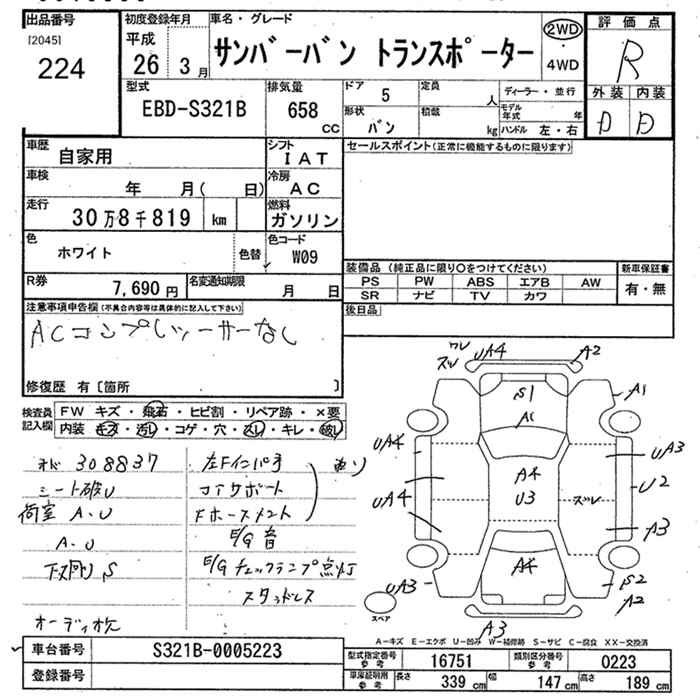 出品番号 初度登録年月 車名・グレード 評価点
[2045] 平成 サンバーバン トランスポーター 2WD R
224 26 3月 ・4WD
型式 排気量 ドア 5 定員 人 ディーラー・並行 外装 内装
EBD-S321B 658 CC 形状 バン 積載 kg モデル年式 年 D D
ハンドル 左・右
車歴 自家用 シフト IAT セールスポイント(正常に機能するものに限ります)
車検 年 月( 日) 冷房 AC
走行 30万8千819 km 燃料 ガソリン
色 ホワイト 色替 色コード W09
装備品(純正品に限り○をつけてください) 新車保証書
R券 7,690円 名変通知期限 月 日 PS PW ABS エアB AW 有・無
SR ナビ TV カワ
注意事項申告欄(不具合内容等は具体的に記入して下さい) 後日品
ACコンプレッサーなし
修復歴 有〔箇所 〕
検査員記入欄 FW キズ・飛石・ヒビ割・リペア跡・×要
内装 キズ・汚レ・コゲ・穴・スレ・キレ・破レ
308837 左Fインパネ
シート破レ コアサポート
荷室 A.U
A.U E/G音
下廻り S E/Gチェックランプ点灯
スタッドレス
オーディオ欠
UA4 A2
S1 A1
A1
UA4 A4 UA3
UA4 U3 ズレ U2
A3
UA3 A4 S2
A2
スペア A3
A-キズ E-エクボ U-凹み W-補修跡 S-サビ C-腐食 XX-交換済
車台番号 S321B-0005223
型式指定番号 参考 16751 類別区分番号 参考 0223
登録番号
車庫証明用 参考 長さ 339 cm 幅 147 cm 高さ 189 cm